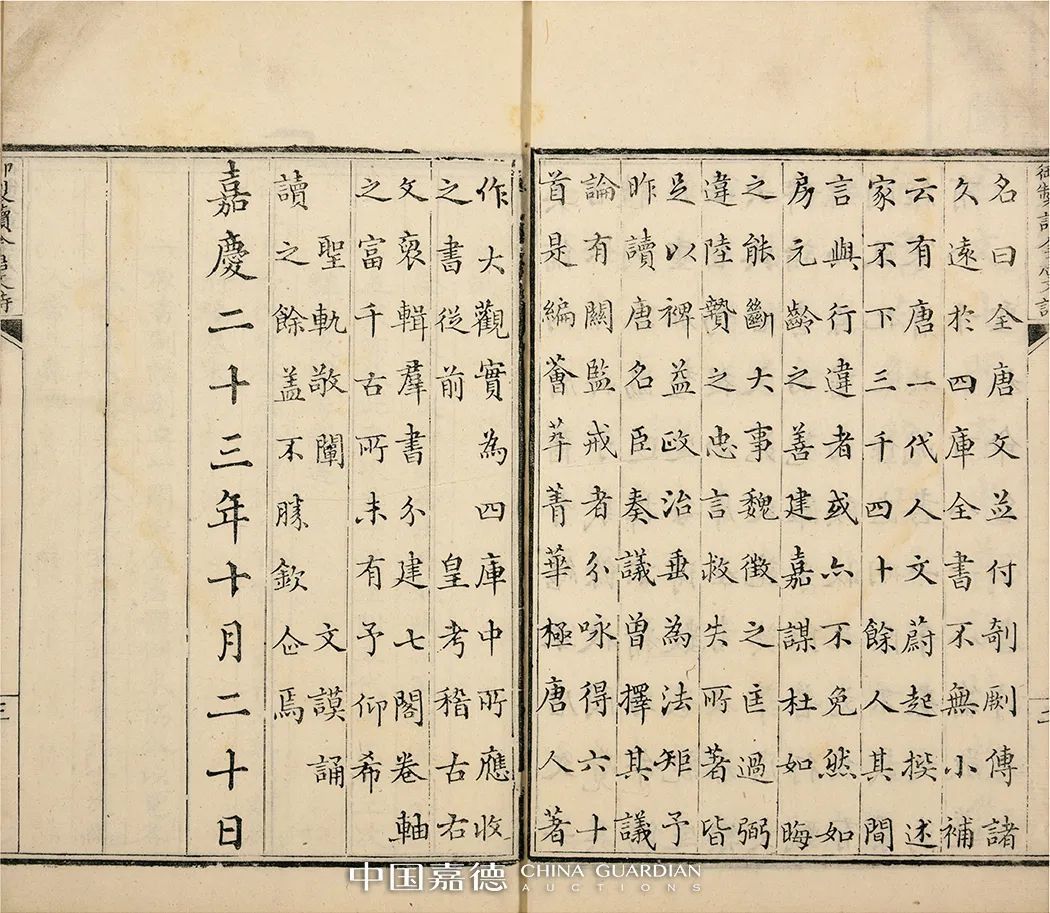 名曰全唐文並付剞劂傳諸
久遠於四庫全書不無小補
云有唐一代人文蔚起撰述
家不下三千四十餘人其間
言與行違者或亦不免然如
房元齡之善建嘉謀杜如晦
之能斷大事魏徵之匡過弼
違陸贄之忠言救失所著皆
足以裨益政治垂為法矩予
昨讀唐名臣奏議曾擇其議
論有關監戒者分咏得六十
首是編薈萃菁華極唐人著
作大觀實為四庫中所應收
之書從前　皇考稽古右
文裒輯羣書分建七閣卷軸
之富千古所未有予仰希
聖軌敬闡　文謨誦
讀之餘盖不勝欽企焉
嘉慶二十三年十月二十日
中国嘉德 CHINA GUARDIAN
AUCTIONS